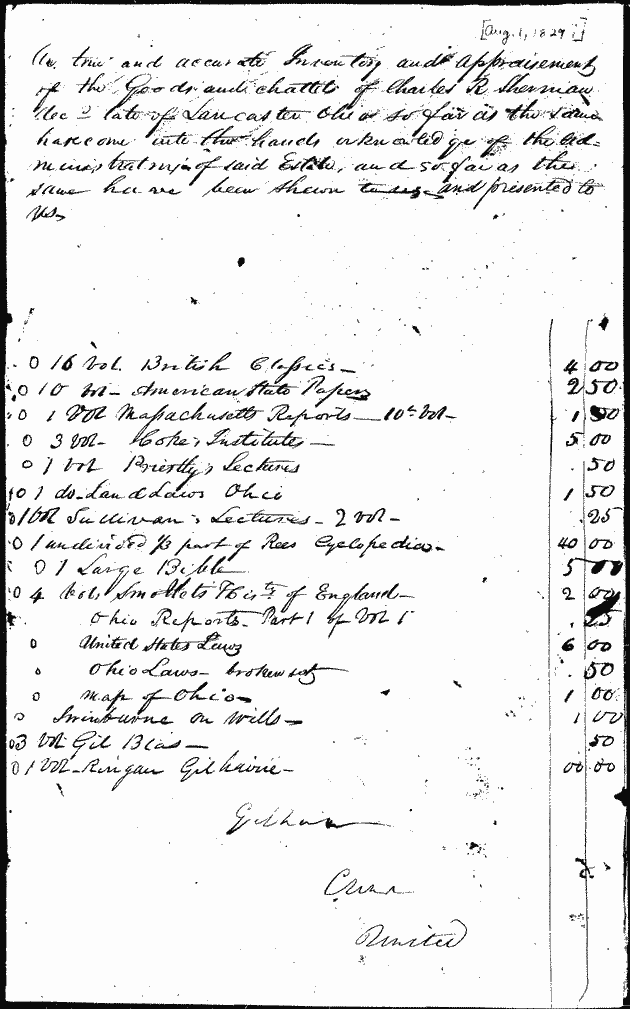 [Aug. 1, 1829]
A true and accurate Inventory and appraisement
of the Goods and chattels of Charles R Sherman
decd late of Lancaster Ohio so far as the same
has come into the hands or knowledge of the Ad-
ministratrix of said Estate, and so far as the
same have been shewn to us and presented to
us
0 16 Vol. British Classics — 4 00
0 10 vol — American State Papers 2 50
0 1 Vol Massachusetts Reports — 10th Vol — 1
0 3 Vol — Coke's Institutes — 5 00
0 1 Vol Priestly's Lectures . 50
0 1 do. Land Laws Ohio 1 50
0 1 Vol Sullivan's Lectures — 2 vol — .25
0 1 undivided 1/3 part of Rees Cyclopedia — 40 00
0 1 Large Bible 5 00
0 4 Vols Smollets Histy of England — 2 00
Ohio Reports — Part 1 of Vol 1 . 25
0 United States Laws 6 00
0 Ohio Laws — broken set . 50
0 Map of Ohio — 1 00
0 Swinburne on Wills — 1 00
0 3 Vol Gil Blas — 50
0 1 Vol — Ringan Gilhaize — 00 00
United